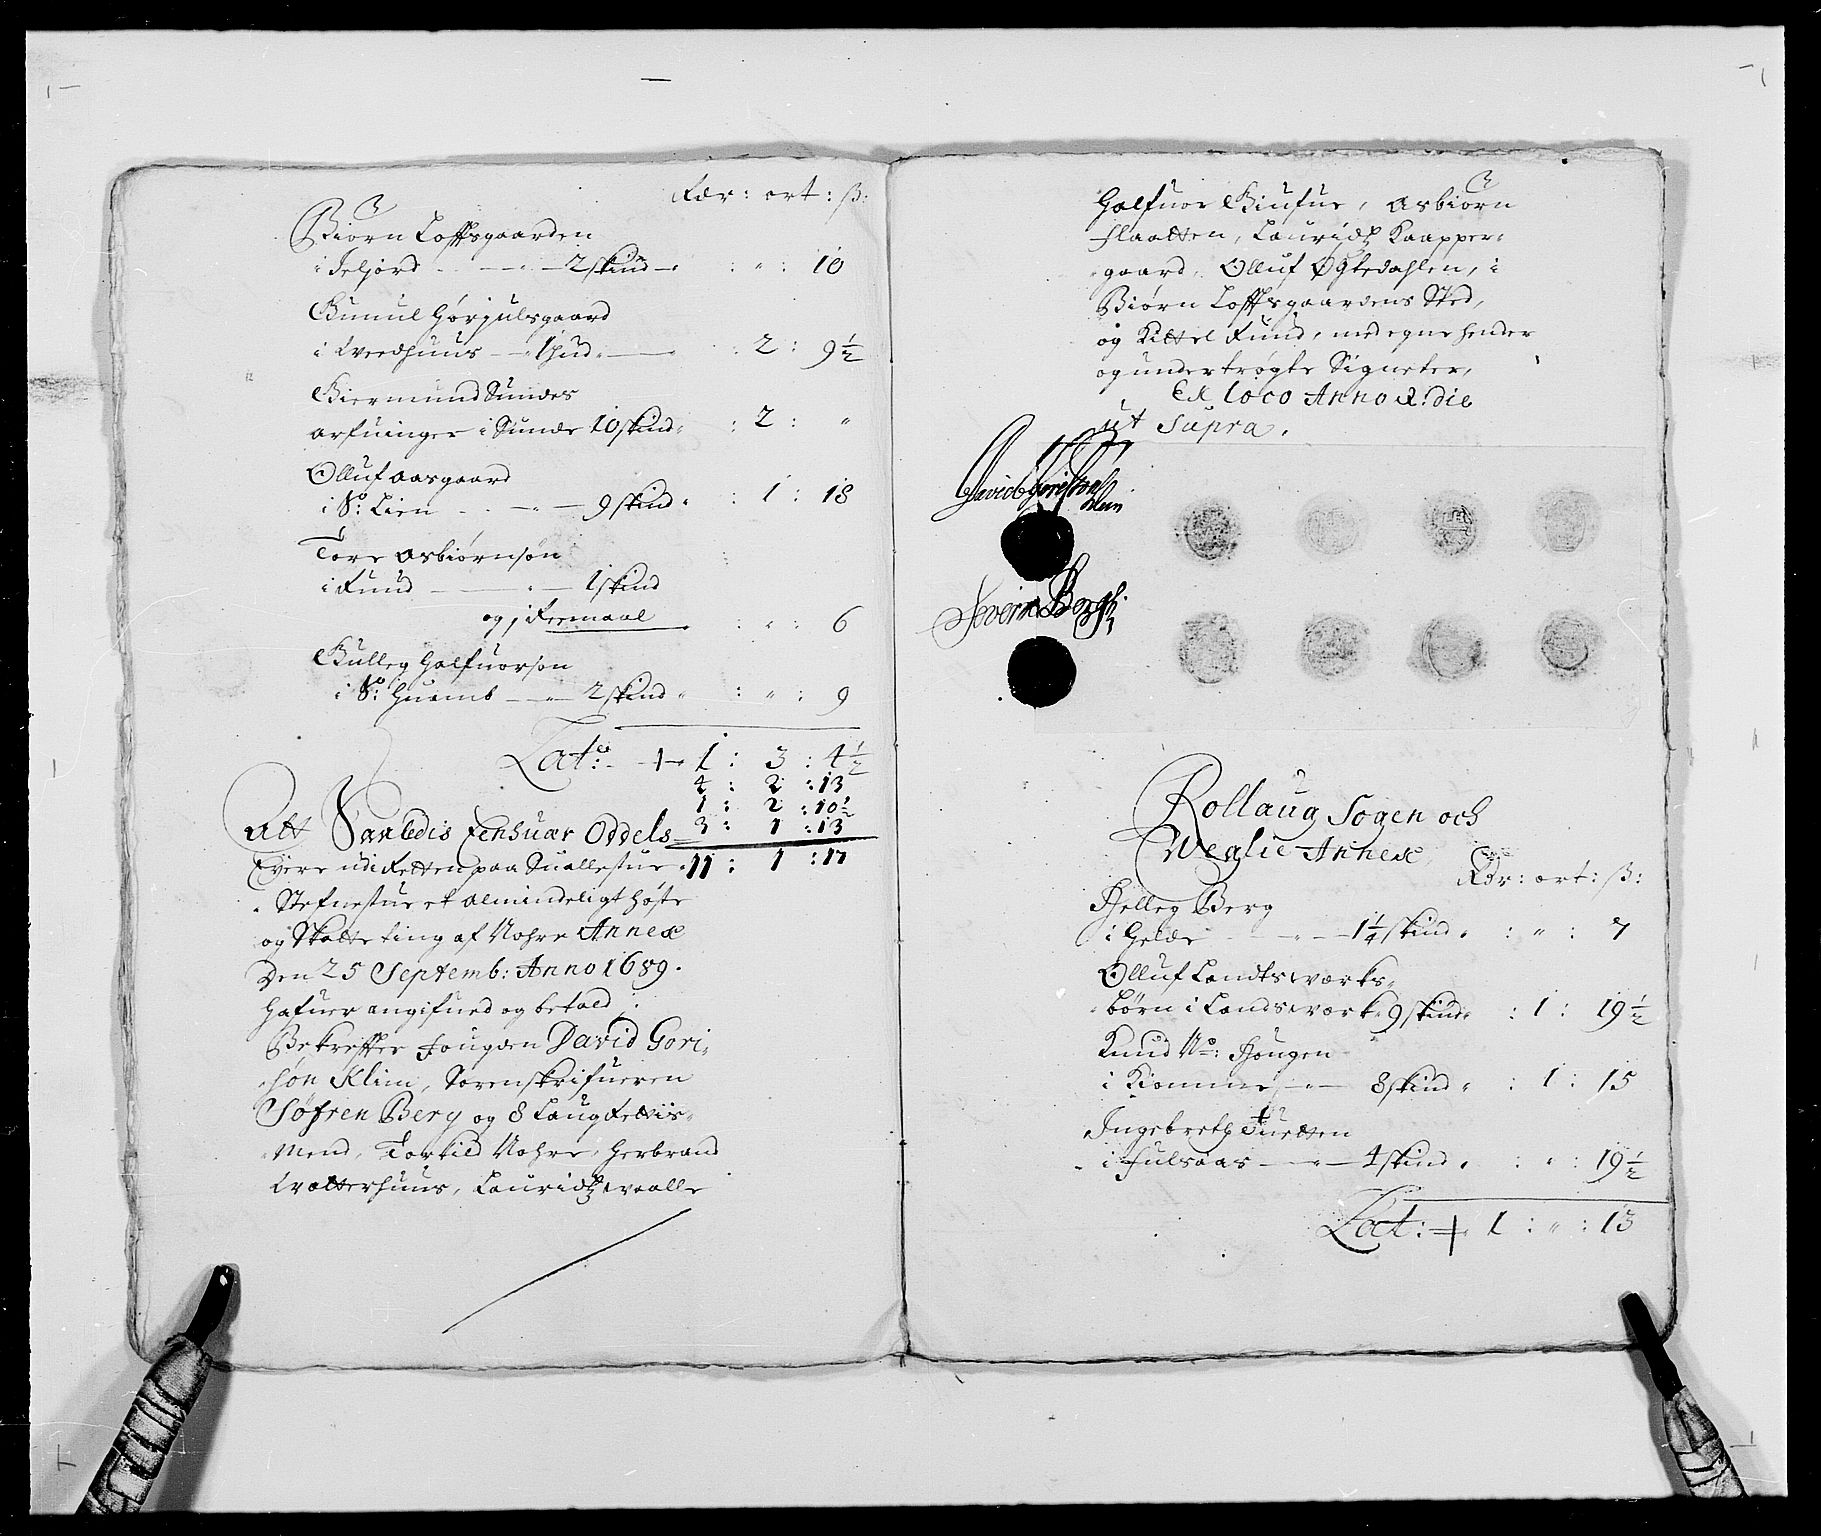 Rdr: ort: ß:
Biørn Loffsgaarden
i Jeljord - - 2 skind - : " : 10
Gunul Gørgulsgaard
i Weedhuus - 1 hud - : 2 : 9½
Giermund Sundes
arfuinger i Sunde 10 skind : 2 : "
Olluf Aasgaard
i No: Lien - - 9 skind : 1 : 18
Tore Asbiørnsøn
i Rund - 1 skind
og j Remaal : " : 6
Gulleg Halfuorsøn
i No: Huamb - 2 skind : " : 9
Late: 1 : 3 : 4½
4 : 2 : 13
1 : 2 : 10½
3 : 1 : 13
Att Saaledis Enhuær Oddels
Eyere udi Retten paa Suallestue 11 : 1 : 17
Stefnestue et almindeligt høste
og Skatte ting af Nohre Annex
Den 25 Septemb: Anno 1689.
hafuer angifued og betald;
Bekreffter fougden David Gori-
søn Klim, Sorenskrifueren
Søfren Berg og 8 Laug Rettis-
Mend, Torkild Nohre, Herbrand
Watterhuus, Lauridtz Waalle
Halfuor Giufue, Asbiørn
Flaatten, Lauridtz Kaapper-
gaard, Olluf Øgtedahlen, i
Biørn Loffsgaardens Sted,
og Kittel Rund, med egne hender
og undertrøgte Signeter,
Ex loco Anno & die
ut Supra.
David Gorisøn
Klim
Severin Bergh
Rollaug Sogen och
Weglie Annex
Rdr: ort: ß:
Helleg Berg
i Gelde - 1¼ skind : " : 7
Olluf Landtswerks
børn i Landswerk 9 skind : 1 : 19½
Knud No: Hougen
i Kiomme - 8 skind : 1 : 15
Ingebreth Tuetten
i Fulsaas - 4 skind : " : 19½
Lat: 1 : " : 13